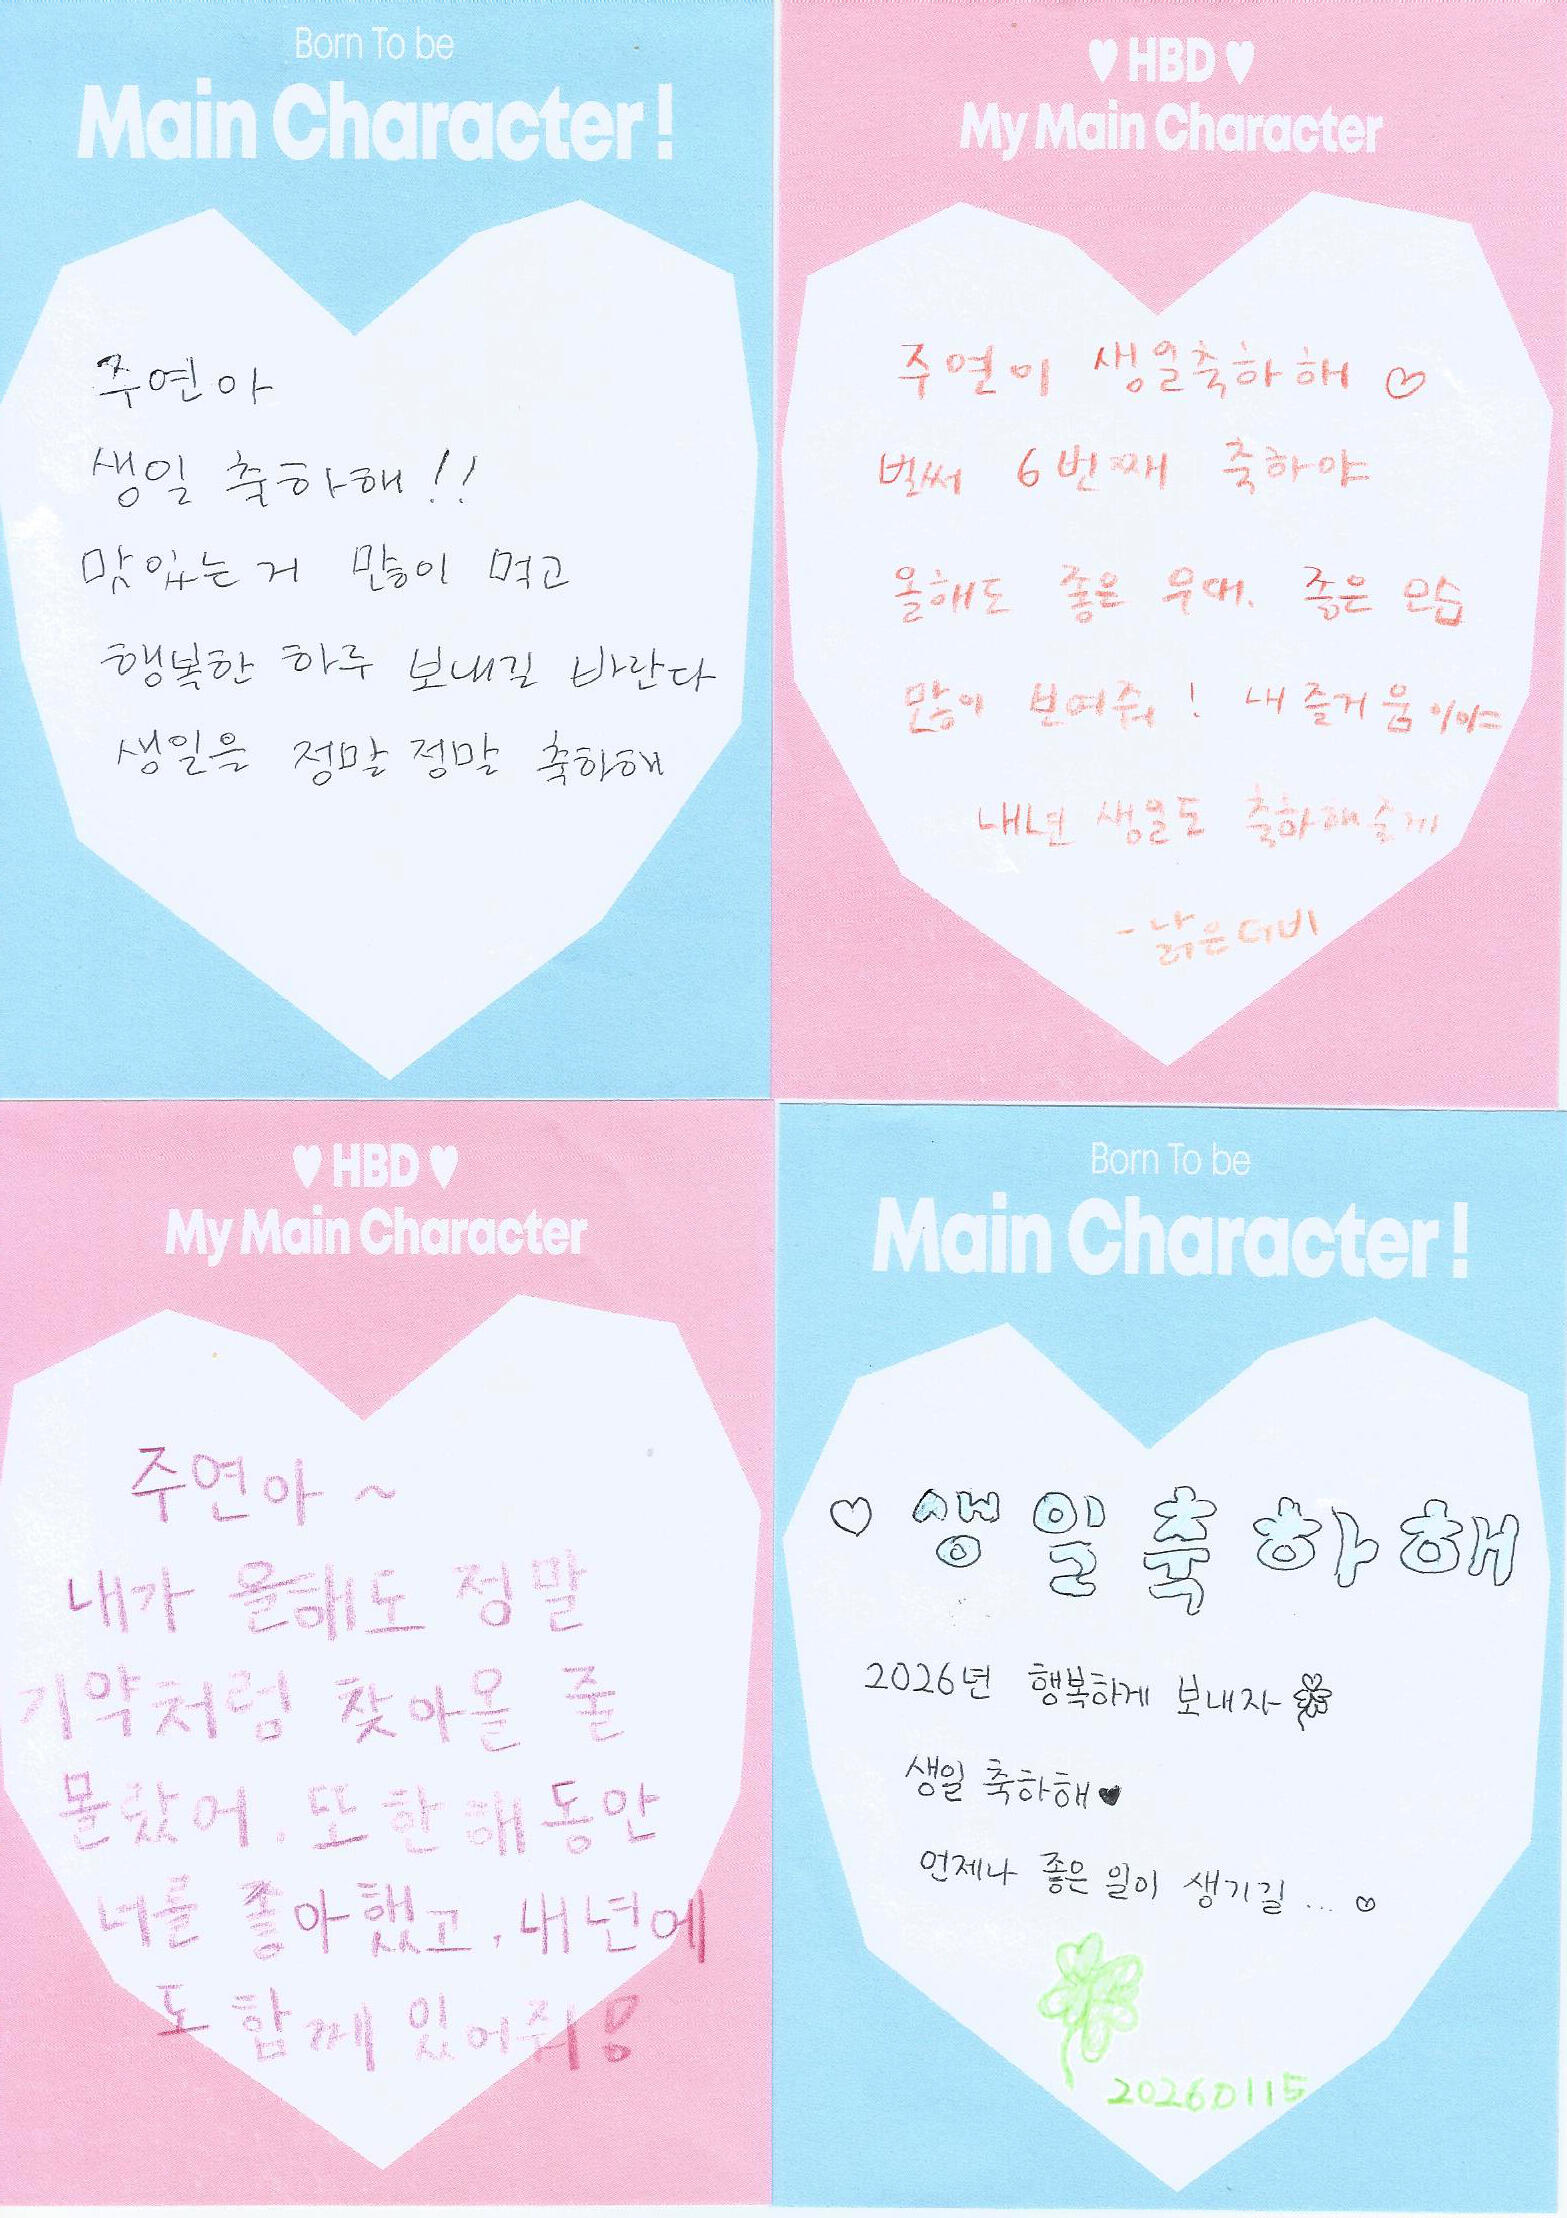 Born To be
Main Character!
주연아
생일 축하해!!
맛있는거 많이 먹고
행복한 하루 보내길 바란다
생일은 정말 정말 축하해
♥ HBD ♥
My Main Character
주연이 생일축하해 ♡
벌써 6번째 축하야
올해도 좋은 무대. 좋은 모습
많이 보여줘! 내 즐거움이야
내년 생일도 축하해줄게
- 늙은더비
♥ HBD ♥
My Main Character
주연아 ~
내가 올해도 정말
기약처럼 찾아올 줄
몰랐어. 또 한해동안
너를 좋아했고, 내년에
도 함께 있어줘!
Born To be
Main Character!
♡ 생일축하해
2026년 행복하게 보내자
생일 축하해♥
언제나 좋은 일이 생기길... ♡
20260115